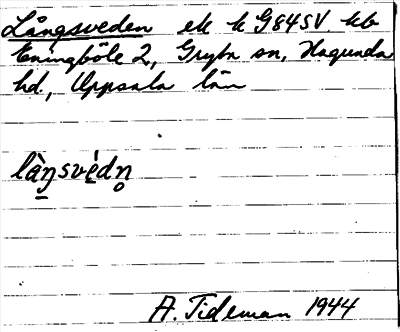 Långsveden ek k G84SV kb
Eningböle 2, Gryta sn, Hagunda
hd., Uppsala län
làŋsvèdn̥
A. Tideman 1944